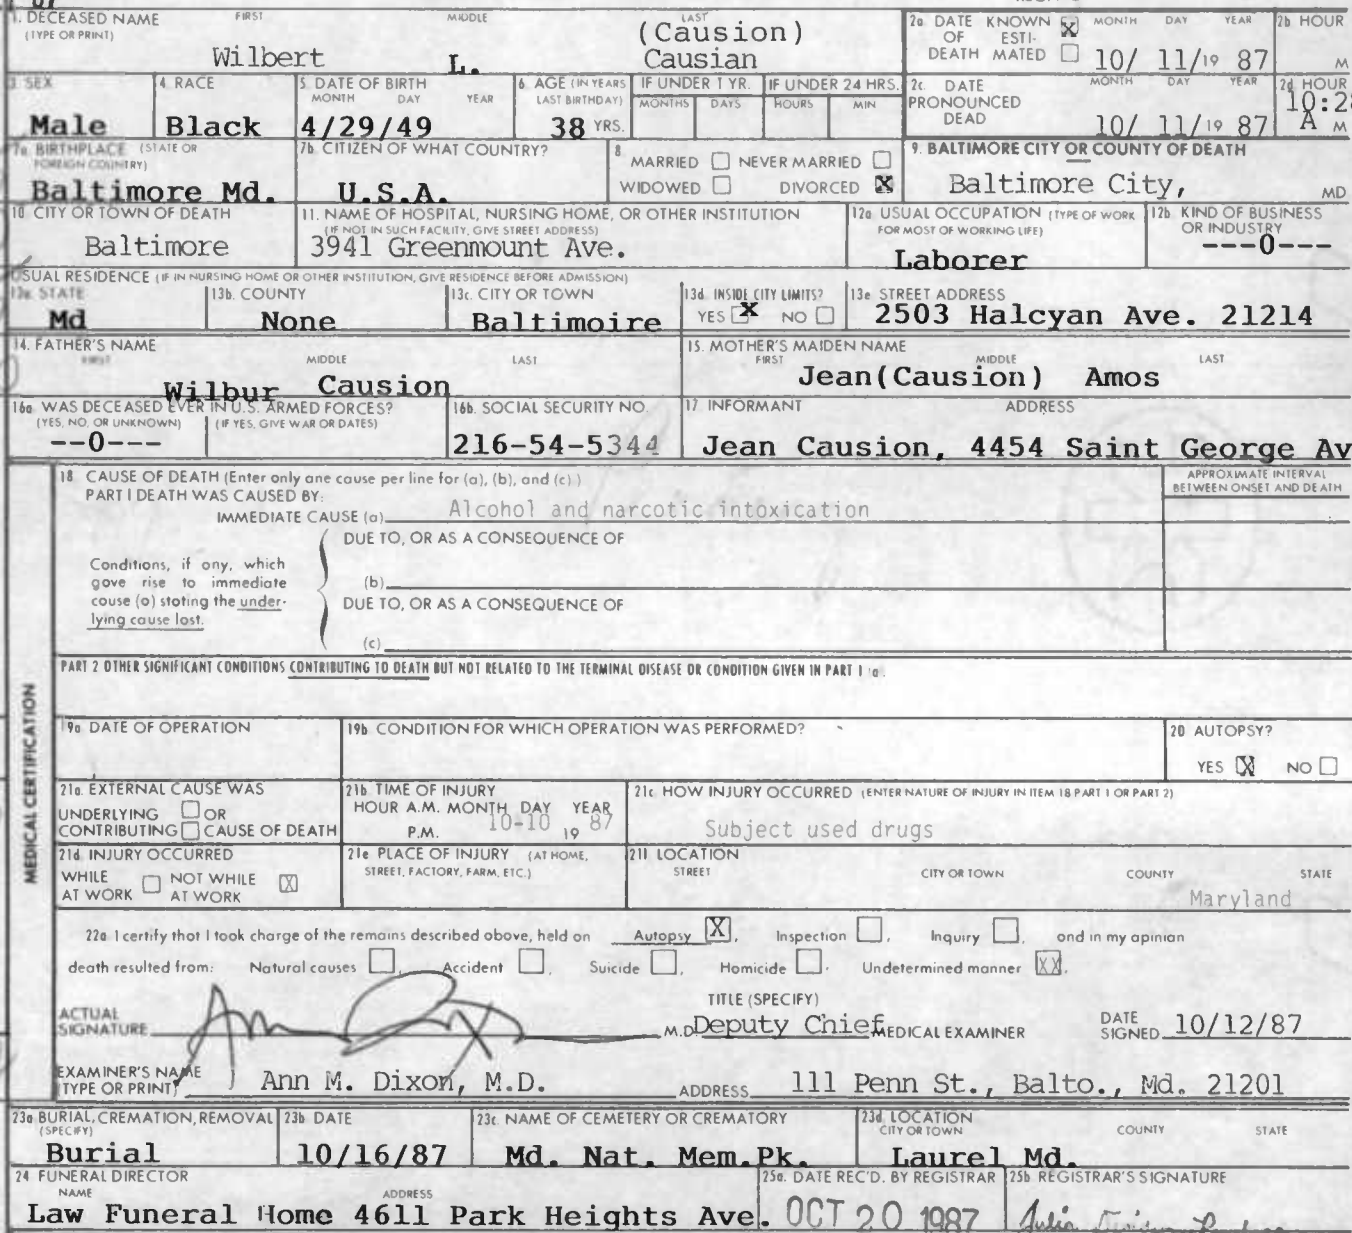 1. DECEASED NAME FIRST MIDDLE LAST
(TYPE OR PRINT)
(Causion)
Wilbert L. Causian
2a DATE KNOWN X MONTH DAY YEAR
OF ESTI-
DEATH MATED 10/ 11/19 87
2b HOUR
M
3 SEX
Male
4 RACE
Black
5. DATE OF BIRTH
MONTH DAY YEAR
4/29/49
6. AGE (IN YEARS
LAST BIRTHDAY)
38 YRS.
IF UNDER 1 YR.
MONTHS DAYS
IF UNDER 24 HRS.
HOURS MIN
2c. DATE MONTH DAY YEAR
PRONOUNCED
DEAD 10/ 11/19 87
2d HOUR
10:28
A M
7a BIRTHPLACE (STATE OR
FOREIGN COUNTRY)
Baltimore Md.
7b. CITIZEN OF WHAT COUNTRY?
U.S.A.
8
MARRIED NEVER MARRIED
WIDOWED DIVORCED X
9. BALTIMORE CITY OR COUNTY OF DEATH
Baltimore City, MD
10 CITY OR TOWN OF DEATH
Baltimore
11. NAME OF HOSPITAL, NURSING HOME, OR OTHER INSTITUTION
(IF NOT IN SUCH FACILITY, GIVE STREET ADDRESS)
3941 Greenmount Ave.
12a USUAL OCCUPATION (TYPE OF WORK
FOR MOST OF WORKING LIFE)
Laborer
12b. KIND OF BUSINESS
OR INDUSTRY
---0---
USUAL RESIDENCE (IF IN NURSING HOME OR OTHER INSTITUTION, GIVE RESIDENCE BEFORE ADMISSION)
13a STATE
Md
13b. COUNTY
None
13c. CITY OR TOWN
Baltimoire
13d. INSIDE CITY LIMITS?
YES X NO
13e STREET ADDRESS
2503 Halcyan Ave. 21214
14. FATHER'S NAME
FIRST MIDDLE LAST
Wilbur Causion
15. MOTHER'S MAIDEN NAME
FIRST MIDDLE LAST
Jean(Causion) Amos
16a WAS DECEASED EVER IN U.S. ARMED FORCES?
(YES, NO, OR UNKNOWN) (IF YES, GIVE WAR OR DATES)
--0---
16b. SOCIAL SECURITY NO.
216-54-5344
17 INFORMANT ADDRESS
Jean Causion, 4454 Saint George Av
MEDICAL CERTIFICATION
18 CAUSE OF DEATH (Enter only one cause per line for (a), (b), and (c).)
PART I DEATH WAS CAUSED BY:
IMMEDIATE CAUSE (a) Alcohol and narcotic intoxication
APPROXIMATE INTERVAL
BETWEEN ONSET AND DEATH
DUE TO, OR AS A CONSEQUENCE OF
Conditions, if any, which
gave rise to immediate
cause (a) stating the under-
lying cause last.
(b)
DUE TO, OR AS A CONSEQUENCE OF
(c)
PART 2 OTHER SIGNIFICANT CONDITIONS CONTRIBUTING TO DEATH BUT NOT RELATED TO THE TERMINAL DISEASE OR CONDITION GIVEN IN PART 1 a.
19a DATE OF OPERATION
19b CONDITION FOR WHICH OPERATION WAS PERFORMED?
20 AUTOPSY?
YES X NO
21a. EXTERNAL CAUSE WAS
UNDERLYING OR
CONTRIBUTING CAUSE OF DEATH
21b TIME OF INJURY
HOUR A.M. MONTH DAY YEAR
P.M. 10-10 19 87
21c HOW INJURY OCCURRED (ENTER NATURE OF INJURY IN ITEM 18 PART 1 OR PART 2)
Subject used drugs
21d INJURY OCCURRED
WHILE NOT WHILE X
AT WORK AT WORK
21e PLACE OF INJURY (AT HOME,
STREET, FACTORY, FARM, ETC.)
21f LOCATION
STREET CITY OR TOWN COUNTY STATE
Maryland
22a I certify that I took charge of the remains described above, held on Autopsy X, Inspection , Inquiry , and in my opinian
death resulted from: Natural causes , Accident , Suicide , Homicide . Undetermined manner XX.
ACTUAL
SIGNATURE
TITLE (SPECIFY)
M.D. Deputy Chief MEDICAL EXAMINER
DATE
SIGNED 10/12/87
EXAMINER'S NAME
(TYPE OR PRINT) Ann M. Dixon, M.D.
ADDRESS 111 Penn St., Balto., Md. 21201
23a BURIAL, CREMATION, REMOVAL
(SPECIFY)
Burial
23b DATE
10/16/87
23c. NAME OF CEMETERY OR CREMATORY
Md. Nat. Mem.Pk.
23d. LOCATION
CITY OR TOWN COUNTY STATE
Laurel Md.
24 FUNERAL DIRECTOR
NAME ADDRESS
Law Funeral Home 4611 Park Heights Ave.
25a. DATE REC'D. BY REGISTRAR
OCT 20 1987
25b REGISTRAR'S SIGNATURE